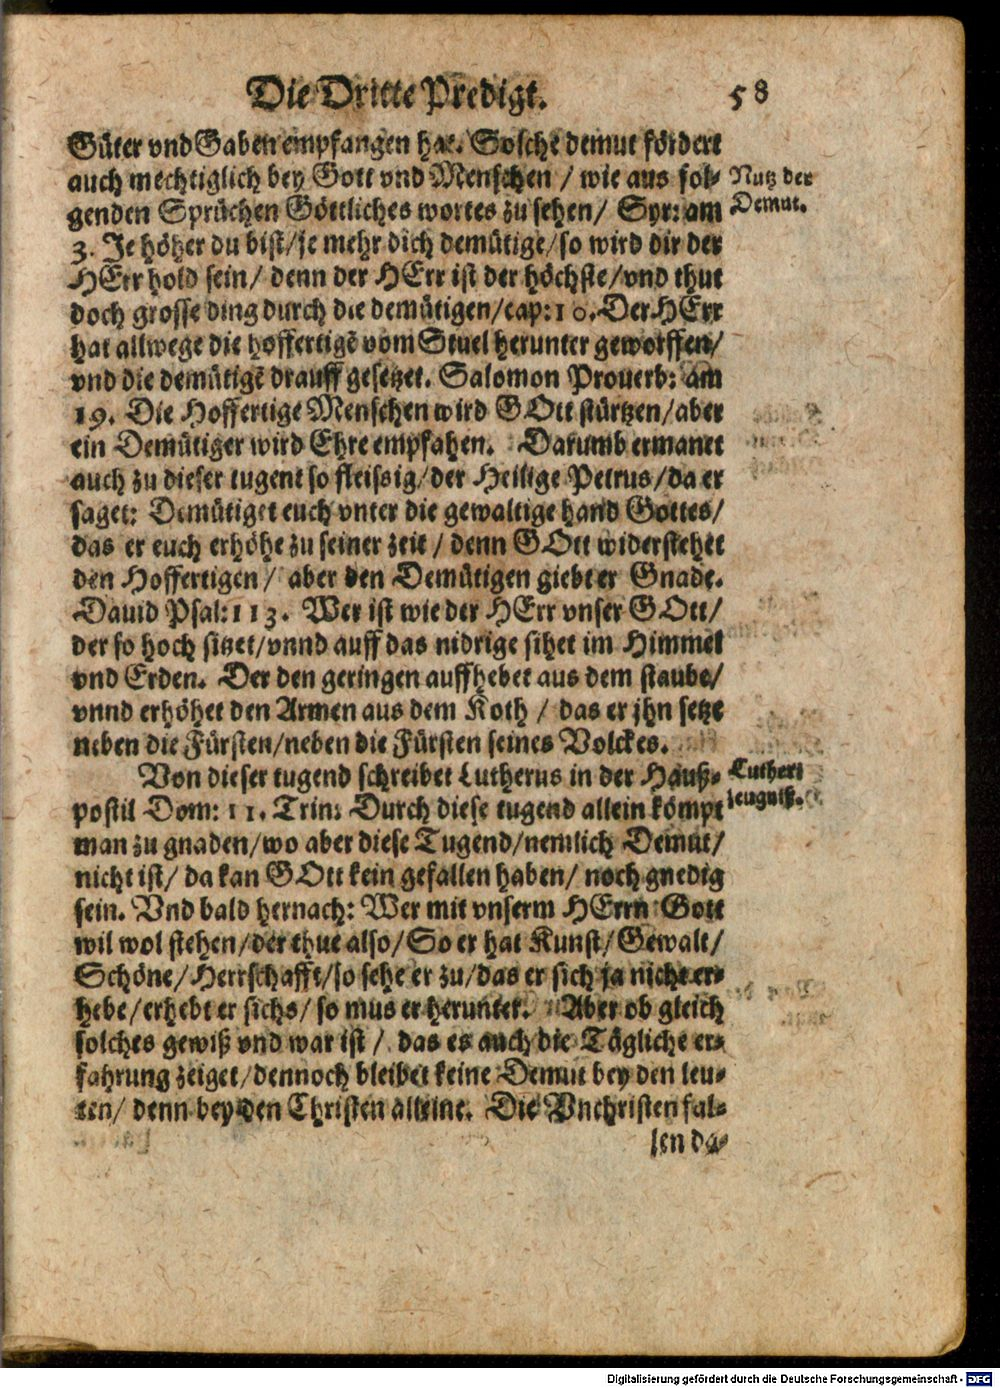 Die Dritte Predigt. 58
Güter vnd Gaben empfangen hat. Solche demut fördert
auch mechtiglich bey Gott vnd Menschen / wie aus fol-
Nutz der
genden Sprüchen Göttliches wortes zu sehen/ Syr: am
Demut.
3. Je höher du bist/je mehr dich demütige/so wird dir der
HErr hold sein/ denn der HErr ist der höchste/vnd thut
doch grosse ding durch die demütigen/cap:10. Der HErr
hat allwege die hoffertigē vom Stuel herunter geworffen/
vnd die demütigē drauff gesetzet. Salomon Prouerb: am
19. Die Hoffertige Menschen wird GOtt stürtzen/aber
ein Demütiger wird Ehre empfahen. Darumb ermanet
auch zu dieser tugent so fleissig/der Heilige Petrus/da er
saget: Demütiget euch vnter die gewaltige hand Gottes/
das er euch erhöhe zu seiner zeit / denn GOtt widerstehet
den Hoffertigen/ aber den Demütigen giebt er Gnade.
Dauid Psal:113. Wer ist wie der HErr vnser GOtt/
der so hoch sitzet/vnnd auff das nidrige sihet im Himmel
vnd Erden. Der den geringen auffhebet aus dem staube/
vnnd erhöhet den Armen aus dem Koth / das er jhn setze
neben die Fürsten/neben die Fürsten seines Volckes.
Von dieser tugend schreibet Lutherus in der Hauß-
Lutheri
postil Dom: 11. Trin: Durch diese tugend allein kömpt
zeugniß.
man zu gnaden/wo aber diese Tugend/nemlich Demut/
nicht ist/ da kan GOtt kein gefallen haben/ noch gnedig
sein. Vnd bald hernach: Wer mit vnserm HErrn Gott
wil wol stehen/der thue also/So er hat Kunst/Gewalt/
Schöne/Herrschafft/so sehe er zu/das er sich ja nicht er-
hebe/erhebt er sichs/ so mus er herunter. Aber ob gleich
solches gewiß vnd war ist / das es auch die Tägliche er-
fahrung zeiget/dennoch bleibet keine Demut bey den leu-
ten/ denn bey den Christen alleine. Die Vnchristen fal-
len da-
Digitalisierung gefördert durch die Deutsche Forschungsgemeinschaft - DFG